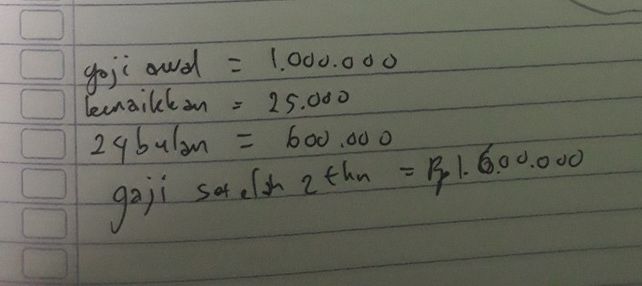 gaji awal = 1.000.000
kenaikkan = 25.000
24 bulan = 600.000
gaji setelah 2 thn = Rp 1.600.000